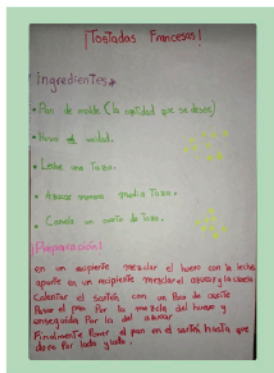 ¡Tostadas Francesas!
Ingredientes
• Pan de molde (la cantidad que se desee)
• Huevo 1 unidad.
• Leche una Taza.
• Azucar morena media Taza.
• Canela un cuarto de Taza.
¡Preparación!
en un recipiente mezclar el huevo con la leche
aparte en un recipiente mezclar el azucar y la canela
Calentar el sartén con un Poco de aceite
Pasar el pan Por la mezcla del huevo y
enseguida Por la del azucar
Finalmente Poner el pan en el sartén hasta que
dore Por lado y lado.